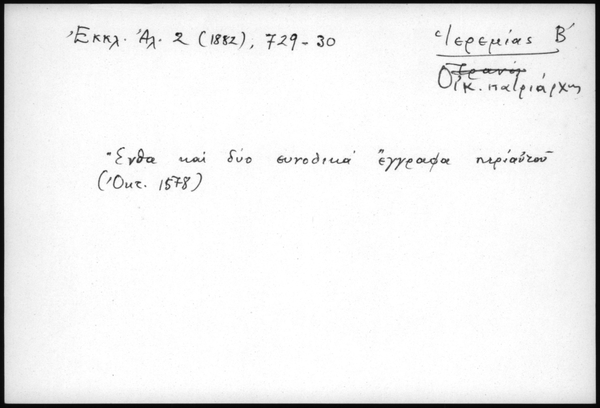 Ἐκκλ. Ἀλ. 2 (1882), 729-30
Ἱερεμίας Β΄
Οἰκ. πατριάρχης
Ἔνθα καὶ δύο συνοδικά ἔγγραφα περὶ αὐτοῦ
(Ὀκτ. 1578)